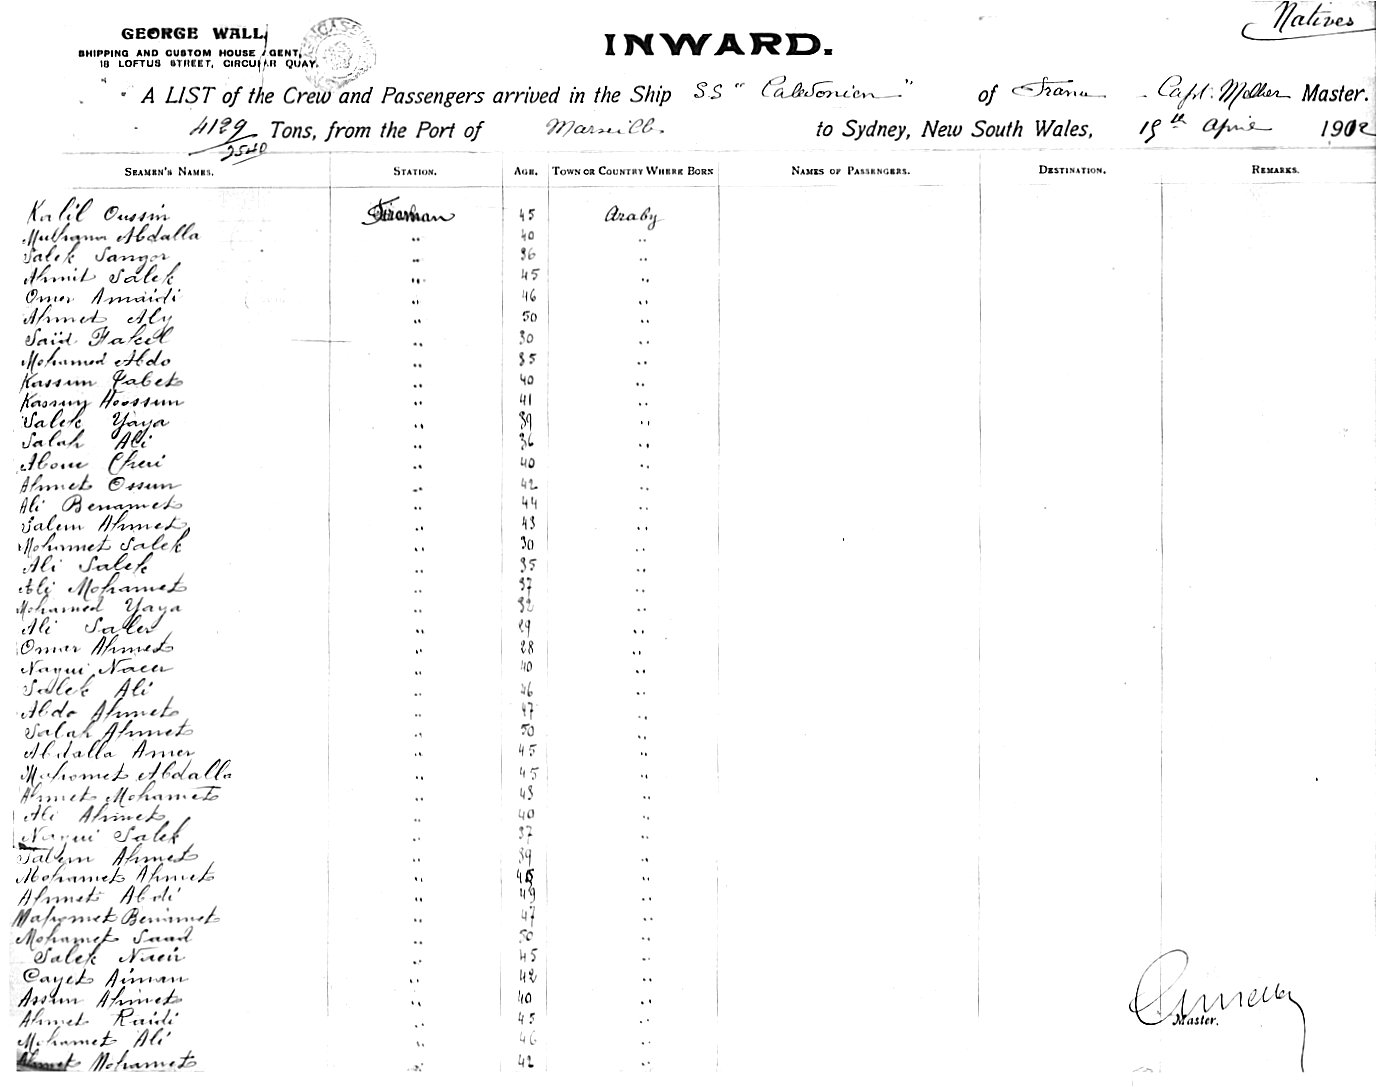 Natives
GEORGE WALL,
SHIPPING AND CUSTOM HOUSE AGENT,
18 LOFTUS STREET, CIRCULAR QUAY.
INWARD.
A LIST of the Crew and Passengers arrived in the Ship SS "Caledonien" of Capt. Master.
4129 Tons, from the Port of Marseilles to Sydney, New South Wales, April 1902
2540
SEAMEN'S NAMES. STATION. AGE. TOWN OR COUNTRY WHERE BORN NAMES OF PASSENGERS. DESTINATION. REMARKS.
Kalil Oussin Fireman 45 Araby
Abdalla " 40 "
Salek Sangor " 36 "
Ahmit Salek " 45 "
Omer Amaidi " 46 "
Ahmet Aly " 50 "
Saïd " 30 "
Mohamed Abdo " 35 "
Kassun " 40 "
Kassun Hoossun " 41 "
Salek Yaya " 39 "
Salah Ali " 36 "
Abou Cheri " 40 "
Ahmet Ossun " 42 "
Ali Benamet " 44 "
Salem Ahmet " 43 "
Mohamet Salek " 30 "
Ali Salek " 35 "
Ali Mohamet " 37 "
Mohamed Yaya " 32 "
Ali " 29 "
Omar Ahmed " 28 "
Nagui Nacer " 40 "
Salek Ali " 46 "
Abdo Ahmet " 47 "
Salah Ahmet " 50 "
Abdalla Amer " 45 "
Mahomet Abdalla " 45 "
Ahmet Mohamet " 43 "
Ali Ahmet " 40 "
Nagui Salek " 37 "
Salem Ahmet " 39 "
Mohamet Ahmet " "
Ahmet Abdi " 49 "
Mahomet Benamet " 47 "
Mohamet Saad " 50 "
Salek " 45 "
Cayet Aiman " 42 "
Assun Ahmet " 40 "
Ahmet Raidi " 45 "
Master.
Mohamet Ali " 46 "
Ahmet Mohamet " 42 "